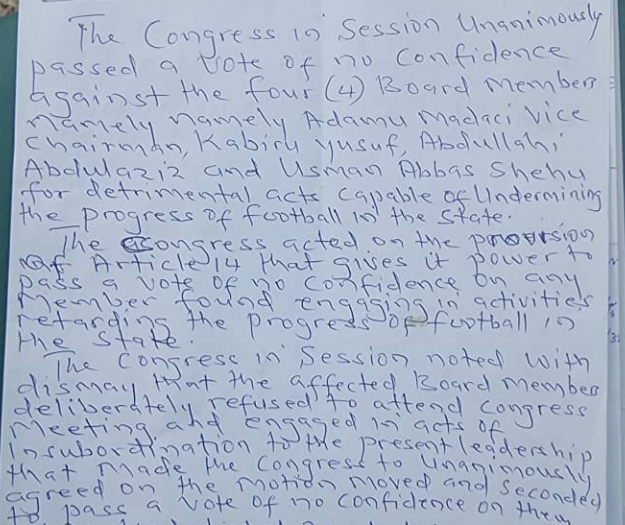 The Congress in Session Unanimously
passed a Vote of no confidence
against the four (4) Board Members
namely namely Adamu Madaci Vice
Chairman, Kabiru Yusuf, Abdullahi
Abdulaziz and Usman Abbas Shehu
for detrimental acts capable of Undermining
the progress of football in the State.
The Congress acted on the provision
of Article 14 that gives it power to
pass a vote of no confidence on any
Member found engaging in activities
retarding the progress of football in
the State.
The Congress in Session noted with
dismay that the affected Board Member
deliberately refused to attend Congress
Meeting and engaged in acts of
Insubordination to the present leadership
that made the Congress to Unanimously
agreed on the motion moved and Seconded
to pass a Vote of no confidence on them